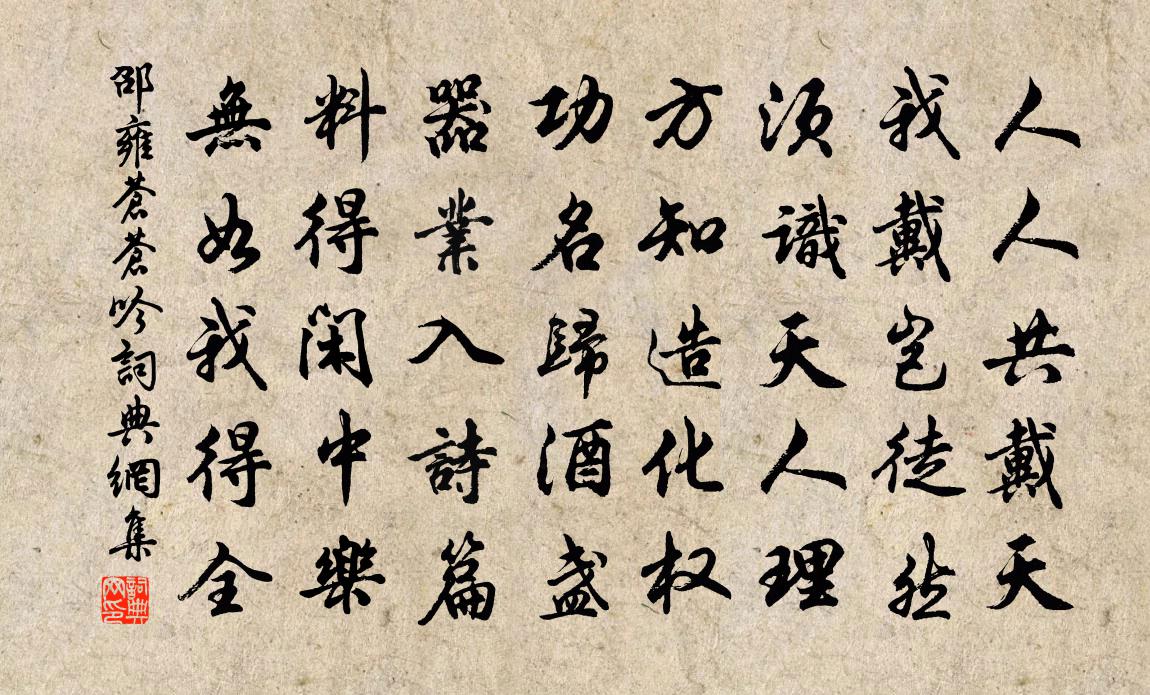 人人共戴天
我戴岂徒然
須識天人理
方知造化权
功名歸酒盏
器業入詩篇
料得闲中樂
無如我得全
邵雍蒼蒼吟詞典網集
詞典網印